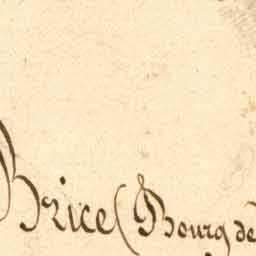 Brice (Bourg de